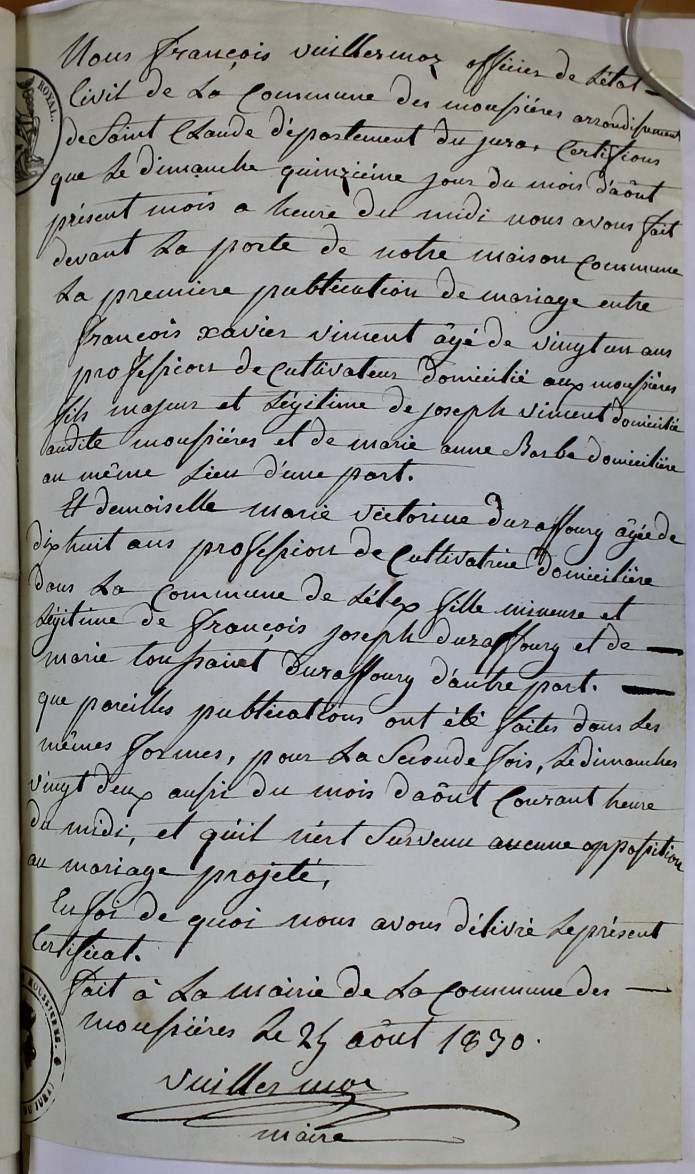 ROYAL.
Nous françois vuillermoz officier de L'état
Civil de La Commune des moussiéres arrondissement
de Saint Claude département du jura, Certifions
que Le dimanche quinziéme jour du mois d'aôut
présent mois a heure du midi nous avons fait
devant La porte de notre maison Commune
La premiere publication de mariage entre
françois xavier viment âgé de vingt un ans
profession de Cultivateur domicilié aux moussiéres
fils majeur et Légitime de joseph viment domicilié
audite moussiéres et de marie anne Barbe domicilière
au même Lieu d'une part.
Et demoiselle marie victorine duraffourg âgée de
dix huit ans profession de Cultivatrice domicilière
dans La Commune de Lélex fille mineure et
Légitime de françois joseph duraffourg et de
marie toussainet duraffourg d'autre part.
que pareilles publications ont été faites dans Les
mêmes formes, pour La Seconde fois, Le dimanches
vingt deux aussi du mois d'aôut Courant heure
du midi, et qu'il n'ert Survenu aucune opposition
au mariage projeté,
En foi de quoi nous avons délivré Le présent
Certificat.
fait à La mairie de La Commune des
moussiéres Le 25 aôut 1830.
vuillermoz
maire
DU JURA